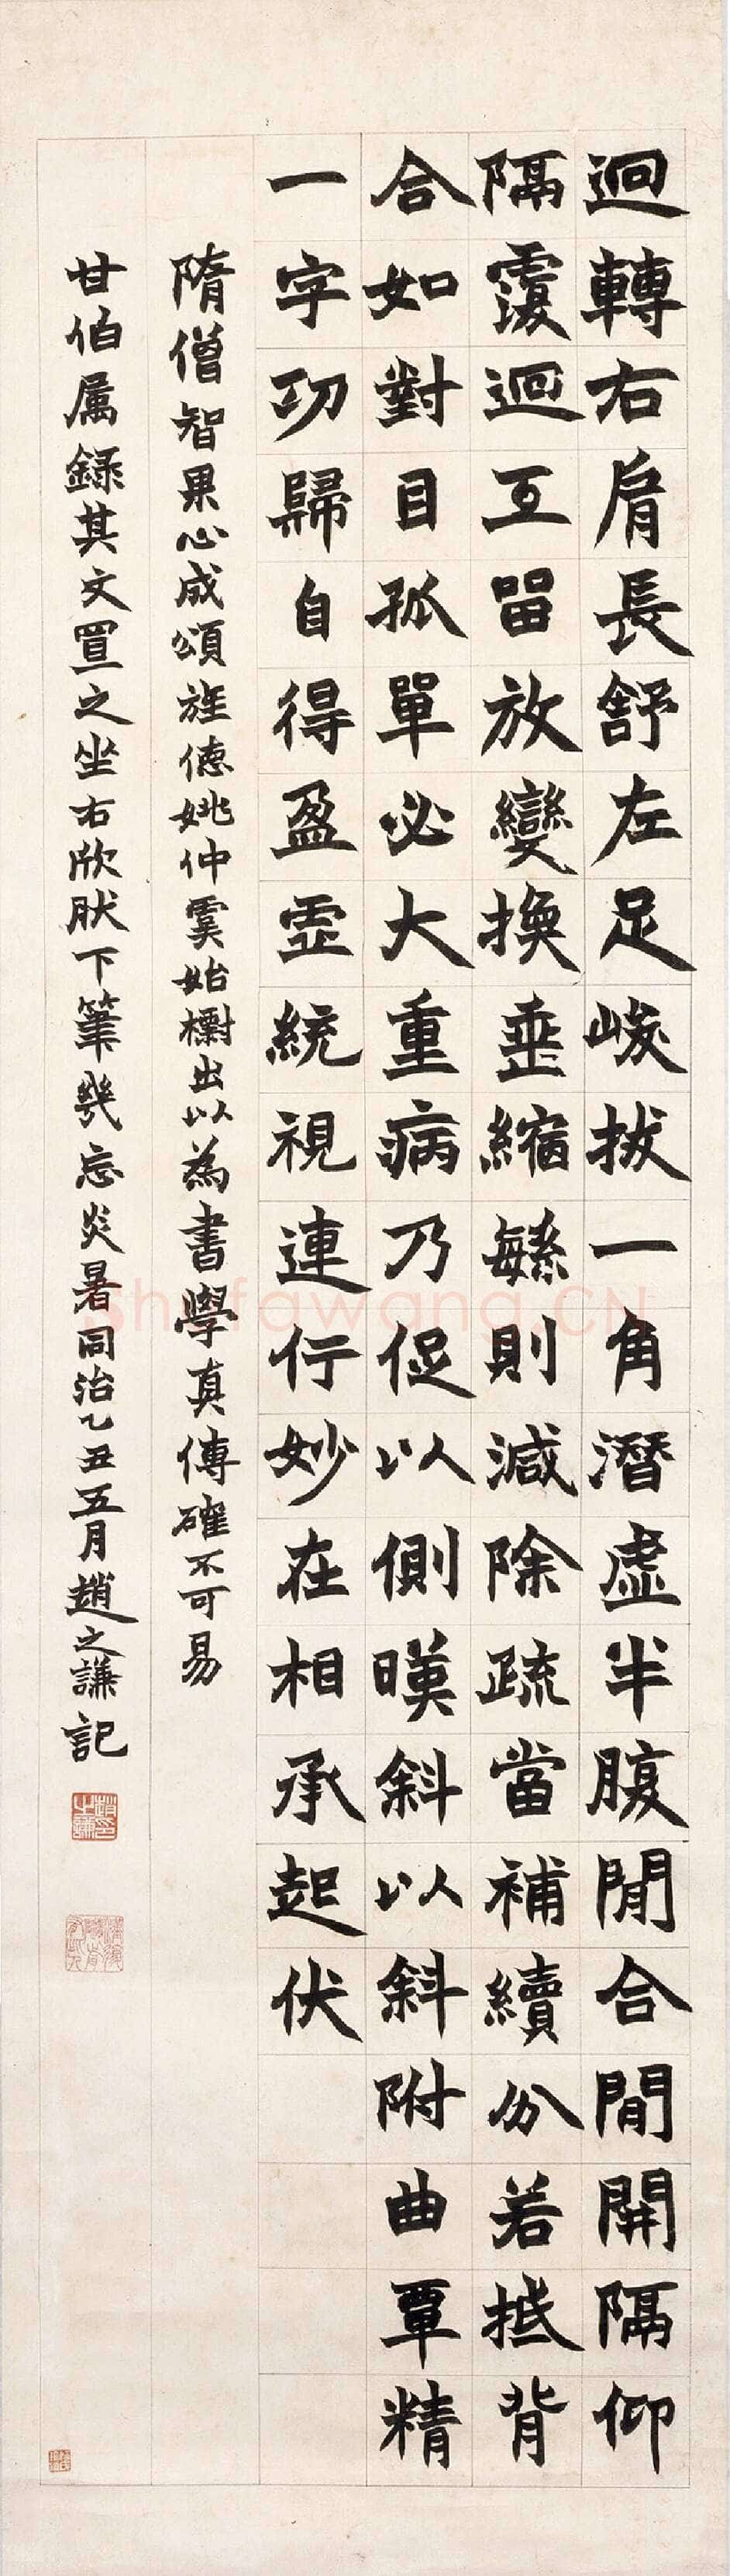 迴轉右肩長舒左足峻拔一角潛虛半腹閒合閒開隔仰
隔覆迴互留放變換垂縮繁則減除疏當補續分若抵背
合如對目孤單必大重病乃促以側映斜以斜附曲覃精
一字功歸自得盈虛統視連行妙在相承起伏
隋僧智果心成頌旌德姚仲虞始櫥出以為書學真傳確不可易
甘伯属録其文置之坐右欣肰下筆幾忘炎暑同治乙丑五月趙之謙記
趙之謙印
shufawang.CN